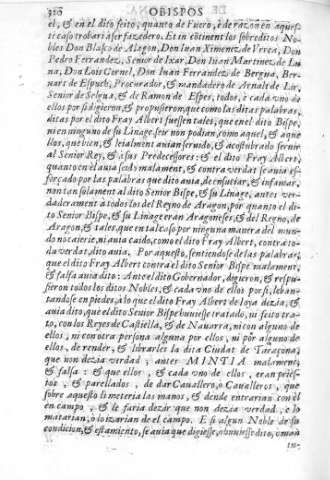 320 OBISPOS
el, & en el dito feito, quanto de Fuero, è de razón en aquest
ti caso trobar à ser fazedero. Et en côtinent los sobreditos No
bles Don Blasco de Alagon, Don Iuan Ximenez de Vrrea, Don
Pedro Ferrandez, Señor de Ixar, Don Iuan Martinez de Lu
na, Don Loís Cornel, Don Iuan Ferrandez de Bergua, Ber
nart de Procurador, & mandadero de Arnalt de Lir,
Senior de Selgua, & de Ramon de Espes; todos, è cada vno de
ellos por si digieron, & propusieron, que como las ditas palabras,
ditas por el dito Fray Albert fuessen tales, que en el dito Bispe,
ni en ninguno de su Linage, seir non podian, como aquel, & aque
llos, que bien, & leialment avian servido, & acostubrado servir
al Senior Rey, & à sus Predecessores: & el dito Fray Albert,
quanto en èl avia seido malament, & contra verdat se avia es-
forçado por las palabras que dito avia, de ensuciar, & infamar,
non tan solament al dito Senior Bispe, & su Linage, antes ver-
daderament à todos los del Reyno de Aragon, por quanto el di-
to Senior Bispe, & su Linage eran Aragoneses, & del Regno, de
Aragon, & tales, que en tal caso por ninguna manera del mun-
do no caierie, ni avia caido, como el dito Fray Albert, contra to-
da verdat, dito avia. Por aquesto, sentiendose de las palabras,
que el dito Fray Albert contra el dito Senior Bispe malament,
& falsa avia dito: Ante el dito Gobernador, digeron, & respu-
sieron todos los ditos Nobles, & cada vno de ellos por si, leban-
tandose en piedes, à lo que el dito Fray Albert de loza dezia, &
avia dito, que el dito Señor Bispe huviesse tratado, ni feito tra-
to, con los Reyes de Castiella, & de Navarra, ni con alguno de
ellos, ni con otra persona alguna por ellos, ni por alguno de
ellos, de render, & librarles la dita Ciudat de Taraçona,
que non dezia verdad, antes MINTIA malament,
& falsa: & que ellos, & cada vno de ellos, eran pries-
tos, & parellados, de dar Cavallero, ò Cavalleros, que
sobre aquesto li meteria las manos, & dende entrarian con èl
en campo, & le faria dezir que non dezia verdad, è lo
matarian, ò lo izarian de el campo. E si algun Noble de su
condicion, & estamiento, se avia que digiesse, o huviesse dito, o man